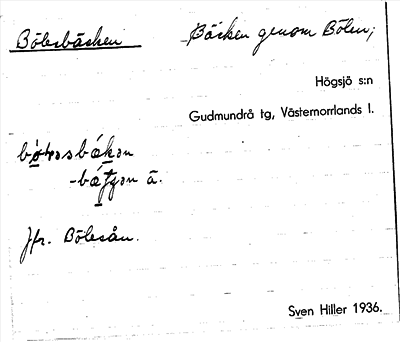 Bölesbäcken Bäcken genom Bölen;
Högsjö s:n
Gudmundrå tg, Västernorrlands l.
-bátjen ä.
Jfr. Bölesån.
Sven Hiller 1936.